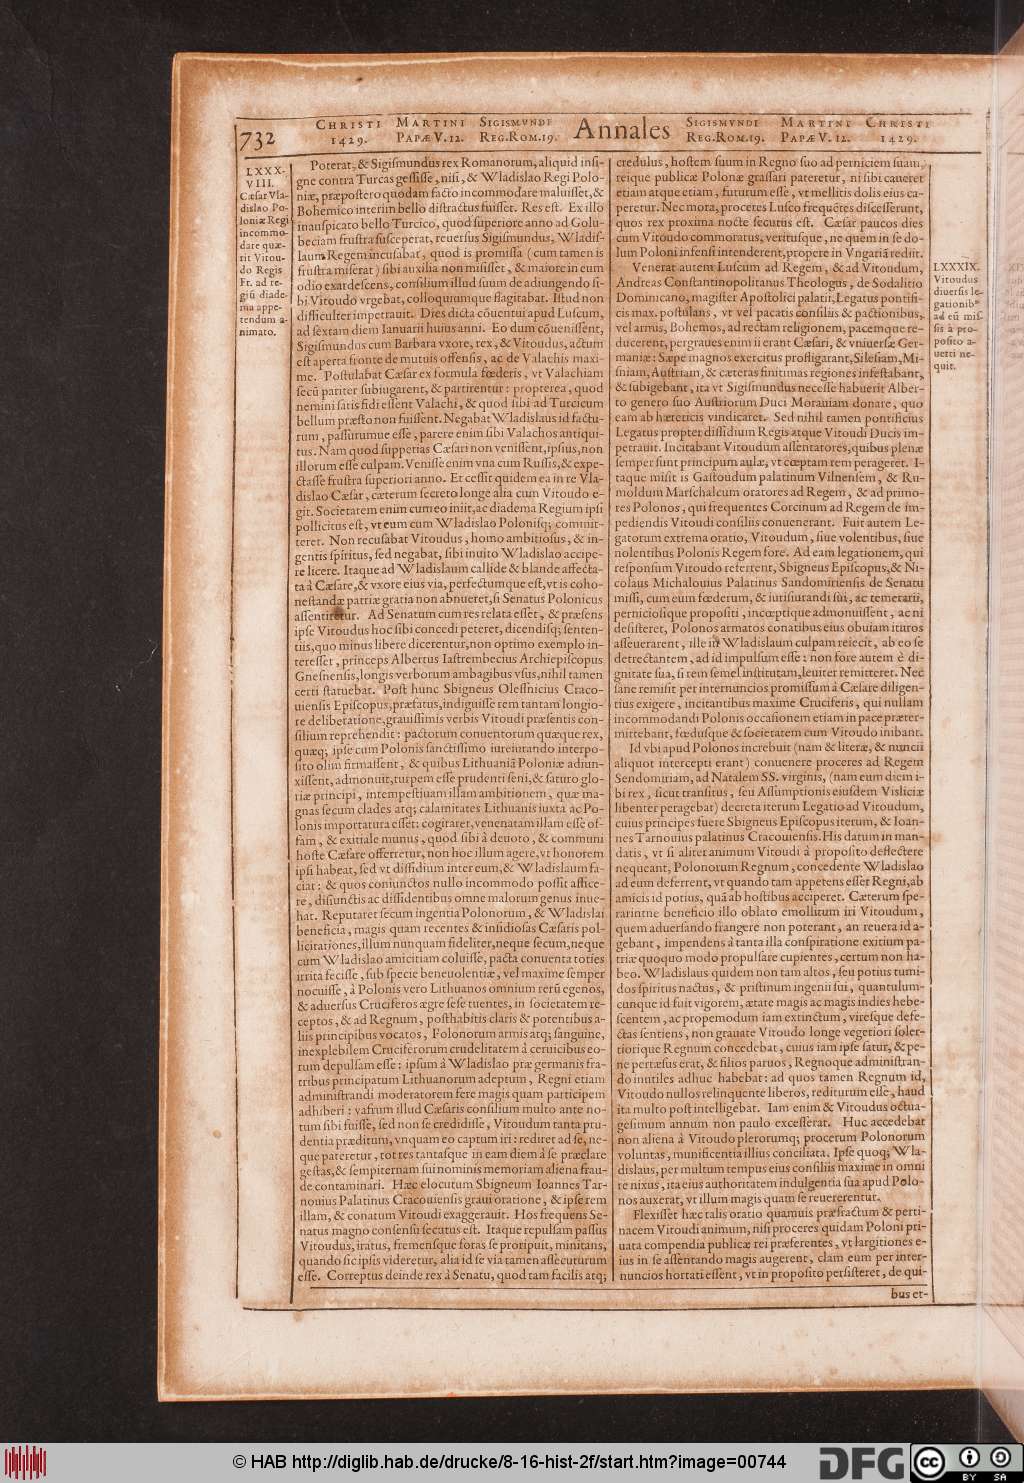 732
CHRISTI MARTINI SIGISMVNDI Annales SIGISMVNDI MARTINI CHRISTI
1429. PAPÆ V. 12. REG. ROM. 19. REG. ROM. 19. PAPÆ V. 12. 1429.
LXXX-
VIII.
Cæsar Vla-
dislao Po-
loniæ Regi
incommo-
dare quæ-
rit Vitou-
do Regis
Fr. ad re-
giũ diade-
ma appe-
tendum a-
nimato.
Poterat, & Sigiſmundus rex Romanorum, aliquid inſi-
gne contra Turcas geſſiſſe, niſi, & Wladislao Regi Polo-
niæ, præpoſtero quodam facto incommodare maluiſſet, &
Bohemico interim bello diſtractus fuiſſet. Res eſt. Ex illo
inauſpicato bello Turcico, quod ſuperiore anno ad Golu-
beciam fruſtra ſuſceperat, reuerſus Sigiſmundus, Wladiſ-
laum Regem incuſabat, quod is promiſſa (cum tamen is
fruſtra miſerat) ſibi auxilia non miſiſſet, & maiore in eum
odio exardeſcens, conſilium illud ſuum de adiungendo ſi-
bi Vitoudo vrgebat, colloquiumque flagitabat. Iſtud non
difficulter impetrauit. Dies dicta cõuentui apud Luſcum,
ad ſextam diem Ianuarii huius anni. Eo dum cõueniſſent,
Sigiſmundus cum Barbara vxore, rex, & Vitoudus, actum
eſt aperta fronte de mutuis offenſis, ac de Valachis maxi-
me. Poſtulabat Cæſar ex formula fœderis, vt Valachiam
ſecũ pariter ſubiugarent, & partirentur: propterea, quod
nemini ſatis fidi eſſent Valachi, & quod ſibi ad Turcicum
bellum præſto non fuiſſent. Negabat Wladislaus id factu-
rum, paſſurumue eſſe, parere enim ſibi Valachos antiqui-
tus. Nam quod ſuppetias Cæſari non veniſſent, ipſius, non
illorum eſſe culpam. Veniſſe enim vna cum Ruſſis, & expe-
ctaſſe fruſtra ſuperiori anno. Et ceſſit quidem ea in re Vla-
dislao Cæſar, cæterum ſecreto longe alia cum Vitoudo e-
git. Societatem enim cum eo iniit, ac diadema Regium ipſi
pollicitus eſt, vt eum cum Wladislao Poloniſq; commit-
teret. Non recuſabat Vitoudus, homo ambitioſus, & in-
gentis ſpiritus, ſed negabat, ſibi inuito Wladislao accipe-
re licere. Itaque ad Wladislaum callide & blande affecta-
ta à Cæſare, & vxore eius via, perfectumque eſt, vt is coho-
neſtandæ patriæ gratia non abnueret, ſi Senatus Polonicus
aſſentiretur. Ad Senatum cum res relata eſſet, & præſens
ipſe Vitoudus hoc ſibi concedi peteret, dicendiſq; ſenten-
tiis, quo minus libere dicerentur, non optimo exemplo in-
tereſſet, princeps Albertus Iaſtrembecius Archiepiſcopus
Gneſnenſis, longis verborum ambagibus vſus, nihil tamen
certi ſtatuebat. Poſt hunc Sbigneus Oleſſnicius Craco-
uienſis Epiſcopus, præfatus, indiguiſſe rem tantam longio-
re deliberatione, grauiſſimis verbis Vitoudi præſentis con-
ſilium reprehendit: pactorum conuentorum quæque rex,
quæq; ipſe cum Polonis ſanctiſſimo iureiurando interpo-
ſito olim firmaſſent, & quibus Lithuaniã Poloniæ adiun-
xiſſent, admonuit, tui pem eſſe prudenti ſeni, & ſaturo glo-
riæ principi, intempeſtiuam illam ambitionem, quæ ma-
gnas ſecum clades atq; calamitates Lithuanis iuxta ac Po-
lonis importatura eſſet: cogitaret, venenatam illam eſſe of-
fam, & exitiale munus, quod ſibi à deuoto, & communi
hoſte Cæſare offerretur, non hoc illum agere, vt honorem
ipſi habeat, ſed vt diſſidium inter eum, & Wladislaum fa-
ciat: & quos coniunctos nullo incommodo poſſit affice-
re, diſiunctis ac diſſidentibus omne malorum genus inue-
hat. Reputaret ſecum ingentia Polonorum, & Wladislai
beneficia, magis quam recentes & inſidioſas Cæſaris pol-
licitationes, illum nunquam fideliter, neque ſecum, neque
cum Wladislao amicitiam coluiſſe, pacta conuenta toties
irrita feciſſe, ſub ſpecie beneuolentiæ, vel maxime ſemper
nocuiſſe, à Polonis vero Lithuanos omnium rerũ egenos,
& aduerſus Cruciferos ægre ſeſe tuentes, in ſocietatem re-
ceptos, & ad Regnum, poſthabitis claris & potentibus a-
liis principibus vocatos, Polonorum armis atq; ſanguine,
inexplebilem Cruciferorum crudelitatem à ceruicibus eo-
rum depulſam eſſe: ipſum à Wladislao præ germanis fra-
tribus principatum Lithuanorum adeptum, Regni etiam
adminiſtrandi moderatorem fere magis quam participem
adhiberi: vafrum illud Cæſaris conſilium multo ante no-
tum ſibi fuiſſe, ſed non ſe credidiſſe, Vitoudum tanta pru-
dentia præditum, vnquam eo captum iri: rediret ad ſe, ne-
que pateretur, tot res tantaſque in eam diem à ſe præclare
geſtas, & ſempiternam ſui nominis memoriam aliena frau-
de contaminari. Hæc elocutum Sbigneum Ioannes Tar-
nouius Palatinus Cracouienſis graui oratione, & ipſe rem
illam, & conatum Vitoudi exaggerauit. Hos frequens Se-
natus magno conſenſu ſecutus eſt. Itaque repulſam paſſus
Vitoudus, iratus, fremenſque foras ſe proripuit, minitans,
quando ſic ipſis videretur, alia id ſe via tamen aſſecuturum
eſſe. Correptus deinde rex à Senatu, quod tam facilis atq;
credulus, hoſtem ſuum in Regno ſuo ad perniciem ſuam,
reique publicæ Polonæ graſſari pateretur, ni ſibi caueret
etiam atque etiam, futurum eſſe, vt mellitis dolis eius ca-
peretur. Nec mora, proceres Luſco frequẽtes diſceſſerunt,
quos rex proxima nocte ſecutus eſt. Cæſar paucos dies
cum Vitoudo commoratus, veritusque, ne quem in ſe do-
lum Poloni infenſi intenderent, propere in Vngariã rediit.
Venerat autem Luſcum ad Regem, & ad Vitoudum,
Andreas Conſtantinopolitanus Theologus, de Sodalitio
Dominicano, magiſter Apoſtolici palatii, Legatus pontifi-
cis max. poſtulans, vt vel pacatis conſiliis & pactionibus,
vel armis, Bohemos, ad rectam religionem, pacemque re-
ducerent, pergraues enim ii erant Cæſari, & vniuerſæ Ger-
maniæ: Sæpe magnos exercitus profligarant, Sileſiam, Mi-
ſniam, Auſtriam, & cæteras finitimas regiones infeſtabant,
& ſubigebant, ita vt Sigiſmundus neceſſe habuerit Alber-
to genero ſuo Auſtriorum Duci Morauiam donare, quo
eam ab hæreticis vindicaret. Sed nihil tamen pontificius
Legatus propter diſſidium Regis atque Vitoudi Ducis im-
petrauit. Incitabant Vitoudum aſſentatores, quibus plenæ
ſemper ſunt principum aulæ, vt cœptam rem perageret. I-
taque miſit is Gaſtoudum palatinum Vilnenſem, & Ru-
moldum Marſchalcum oratores ad Regem, & ad primo-
res Polonos, qui frequentes Corcinum ad Regem de im-
pediendis Vitoudi conſiliis conuenerant. Fuit autem Le-
gatorum extrema oratio, Vitoudum, ſiue volentibus, ſiue
nolentibus Polonis Regem fore. Ad eam legationem, qui
reſponſum Vitoudo referrent, Sbigneus Epiſcopus, & Ni-
colaus Michalouius Palatinus Sandomirienſis de Senatu
miſſi, cum eum fœderum, & iurisiurandi ſui, ac temerarii,
pernicioſique propoſiti, incœptique admonuiſſent, ac ni
deſiſteret, Polonos armatos conatibus eius obuiam ituros
aſſeuerarent, ille in Wladislaum culpam reiecit, ab eo ſe
detrectantem, ad id impulſum eſſe: non fore autem è di-
gnitate ſua, ſi rem ſemel inſtitutam, leuiter remitteret. Nec
ſane remiſit per internuncios promiſſum à Cæſare diligen-
tius exigere, incitantibus maxime Cruciferis, qui nullam
incommodandi Polonis occaſionem etiam in pace præter-
mittebant, fœdusque & ſocietatem cum Vitoudo inibant.
Id vbi apud Polonos increbuit (nam & literæ, & nuncii
aliquot intercepti erant) conuenere proceres ad Regem
Sendomiriam, ad Natalem SS. virginis, (nam eum diem i-
bi rex, ſicut tranſitus, ſeu Aſſumptionis eiuſdem Visliciæ
libenter peragebat) decreta iterum Legatio ad Vitoudum,
cuius principes fuere Sbigneus Epiſcopus iterum, & Ioan-
nes Tarnouius palatinus Cracouienſis. His datum in man-
datis, vt ſi aliter animum Vitoudi à propoſito deflectere
nequeant, Polonorum Regnum, concedente Wladislao
ad eum deferrent, vt quando tam appetens eſſet Regni, ab
amicis id potius, quã ab hoſtibus acciperet. Cæterum ſpe-
rarintne beneficio illo oblato emollitum iri Vitoudum,
quem aduerſando frangere non poterant, an reuera id a-
gebant, impendens à tanta illa conſpiratione exitium pa-
triæ quoquo modo propulſare cupientes, certum non ha-
beo. Wladislaus quidem non tam altos, ſeu potius tumi-
dos ſpiritus nactus, & priſtinum ingenii ſui, quantulum-
cunque id fuit vigorem, ætate magis ac magis indies hebe-
ſcentem, ac propemodum iam extinctum, viresque defe-
ctas ſentiens, non grauate Vitoudo longe vegetiori ſoler-
tiorique Regnum concedebat, cuius iam ipſe ſatur, & pe-
ne pertæſus erat, & filios paruos, Regnoque adminiſtran-
do inutiles adhuc habebat: ad quos tamen Regnum id,
Vitoudo nullos relinquente liberos, rediturum eſſe, haud
ita multo poſt intelligebat. Iam enim & Vitoudus octua-
geſimum annum non paulo exceſſerat. Huc accedebat
non aliena à Vitoudo plerorumq; procerum Polonorum
voluntas, munificentia illius conciliata. Ipſe quoq; Wla-
dislaus, per multum tempus eius conſiliis maxime in omni
re nixus, ita eius authoritatem indulgentia ſua apud Polo-
nos auxerat, vt illum magis quam ſe reuererentur.
Flexiſſet hæc talis oratio quamuis præfractum & perti-
nacem Vitoudi animum, niſi proceres quidam Poloni pri-
uata compendia publicæ rei præferentes, vt largitiones e-
ius in ſe aſſentando magis augerent, clam eum per inter-
nuncios hortati eſſent, vt in propoſito perſiſteret, de qui-
bus et-
LXXXIX.
Vitoudus
diuerſis le-
gationibᵒ
ad eũ miſ-
ſis à pro-
poſito a-
uerti ne-
quit.
© HAB http://diglib.hab.de/drucke/8-16-hist-2f/start.htm?image=00744
DFG
cc
BY SA